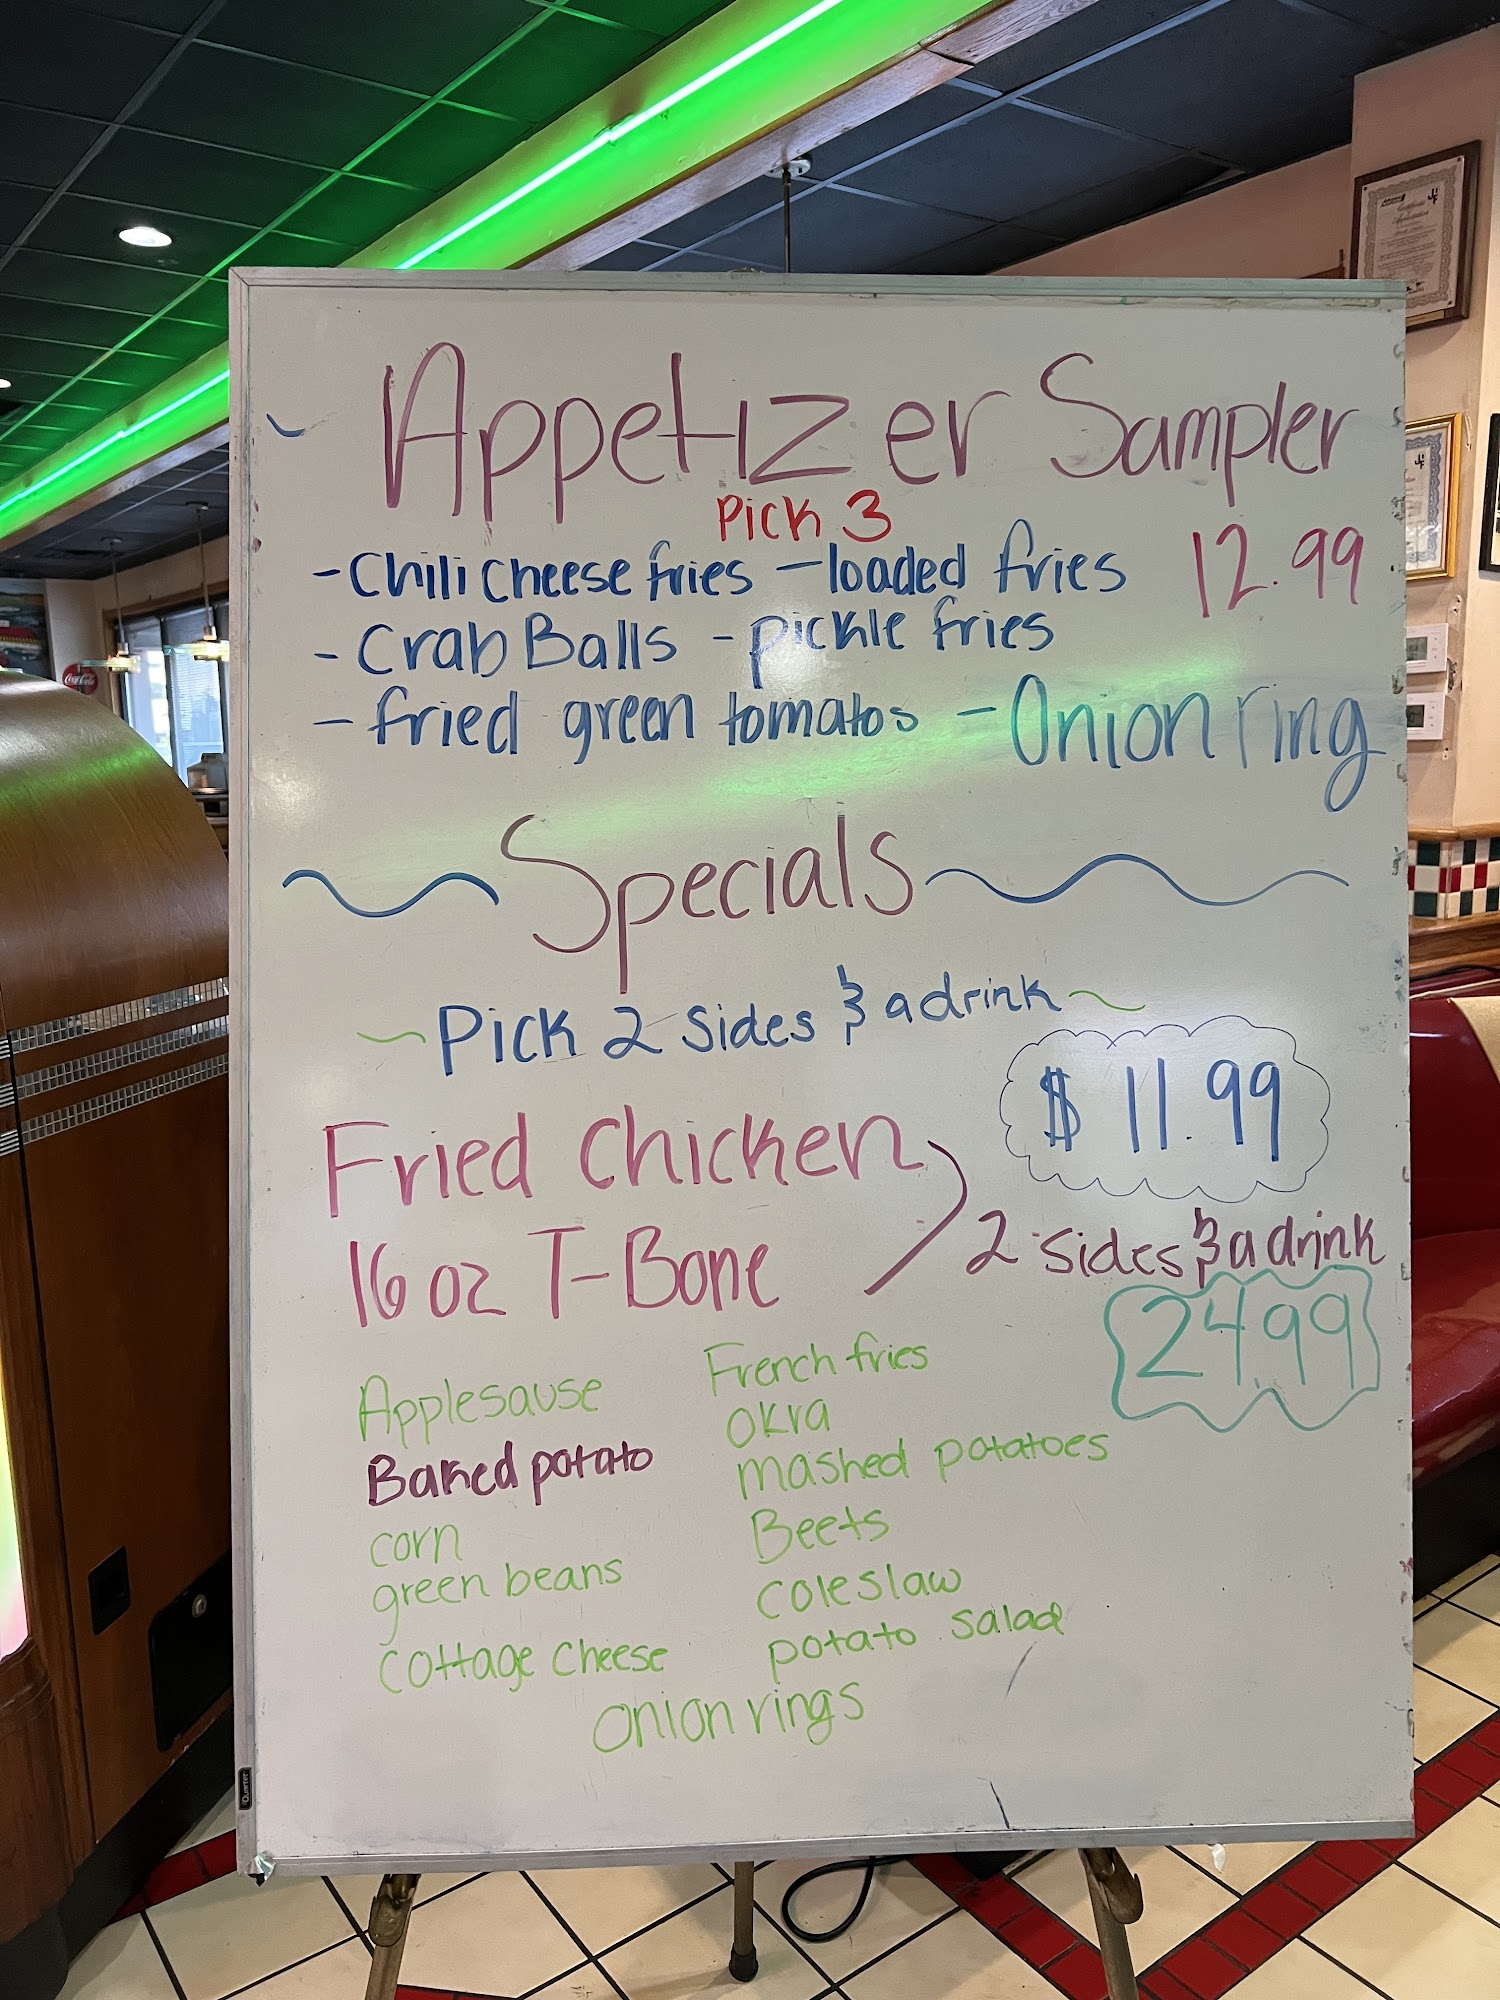 Appetizer Sampler
Pick 3
- Chili cheese fries - loaded fries 12.99
- Crab Balls - pickle fries
- fried green tomatos - Onion ring
Specials
~ Pick 2 sides & a drink ~
$ 11.99
Fried Chicken
2 sides & a drink
16 oz T-Bone
24.99
Applesause French fries
Baked potato okra
corn mashed potatoes
green beans Beets
cottage cheese coleslaw
potato salad
onion rings
Coca-Cola
Quartet